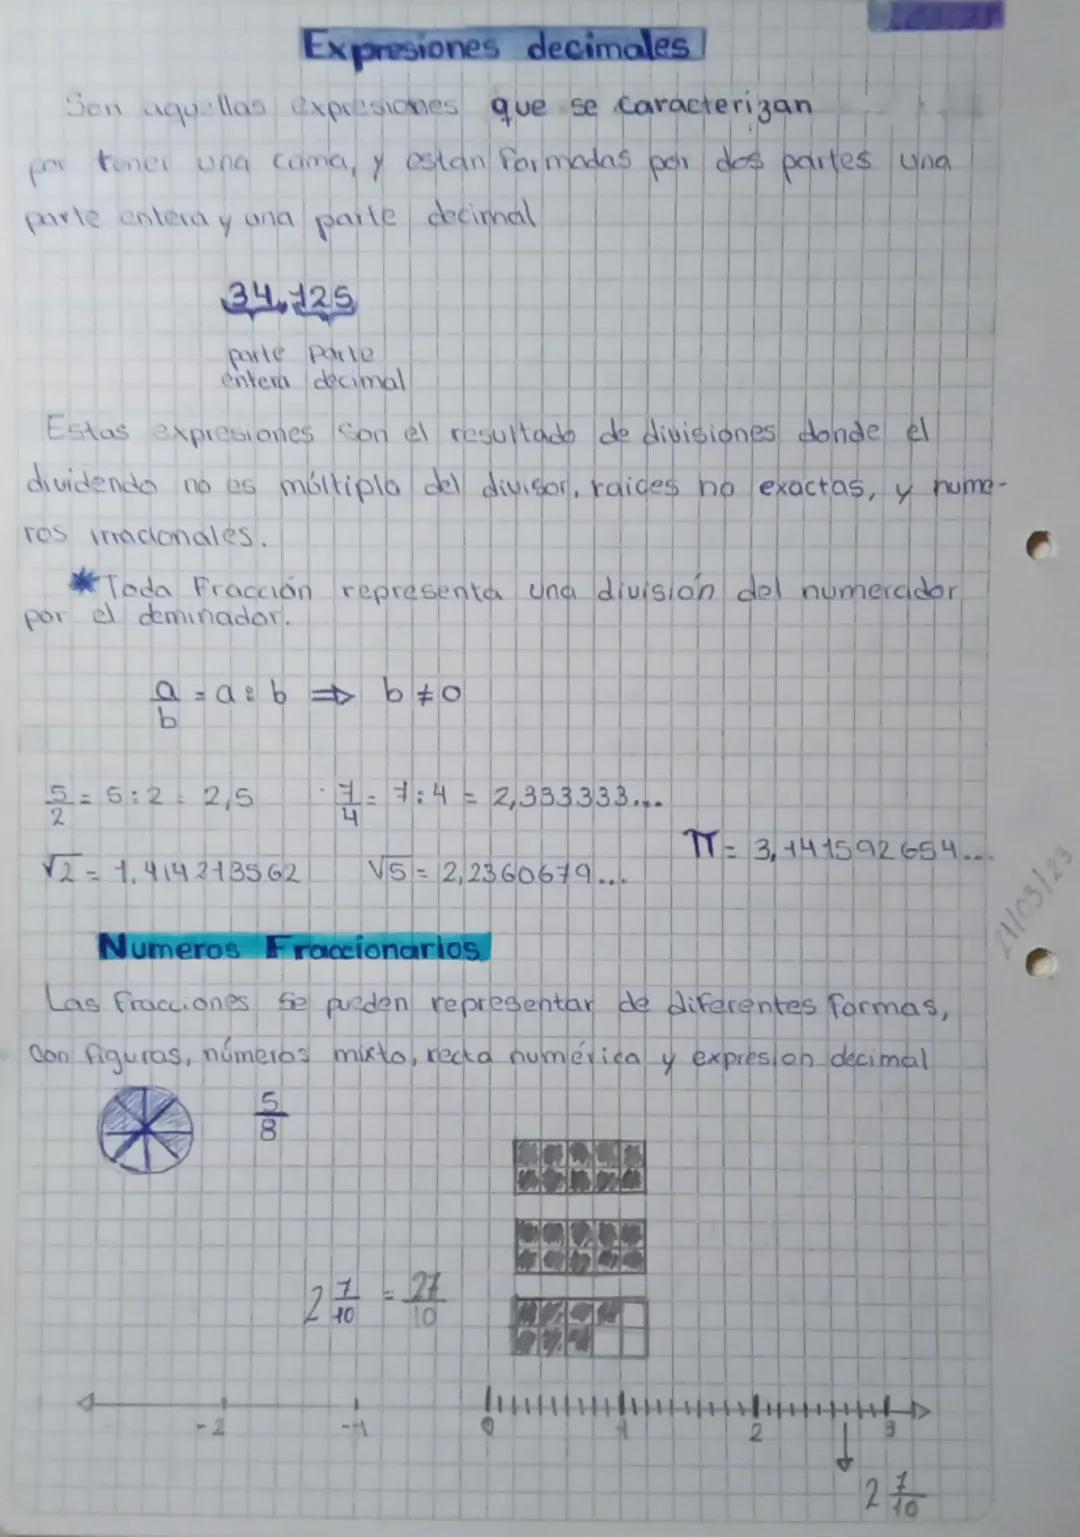 Expresiones decimales
Son aquellas expresiones que se caracterizan
por tener una coma, y están formadas por dos partes una
parte entera y una parte decimal
34,125
parte parte
entera decimal
Estas expresiones son el resultado de divisiones donde el
dividendo no es múltiplo del divisor, raices no exactas, y nume-
ros irracionales.
*Toda Fracción representa una división del numerador
por el deminador.
a/b = a : b ⇒ b ≠ 0
5/2 = 5 : 2 = 2,5 · 7/4 = 7 : 4 = 2,333333...
π = 3,141592654...
√2 = 1,414213562 √5 = 2,2360679...
21/03/23
Numeros Fraccionarios
Las fracciones se pueden representar de diferentes formas,
con figuras, números mixto, recta numérica y expresion decimal
5/8
2 7/10 = 27/10
-2 -1 0 1 2 3
2 7/10